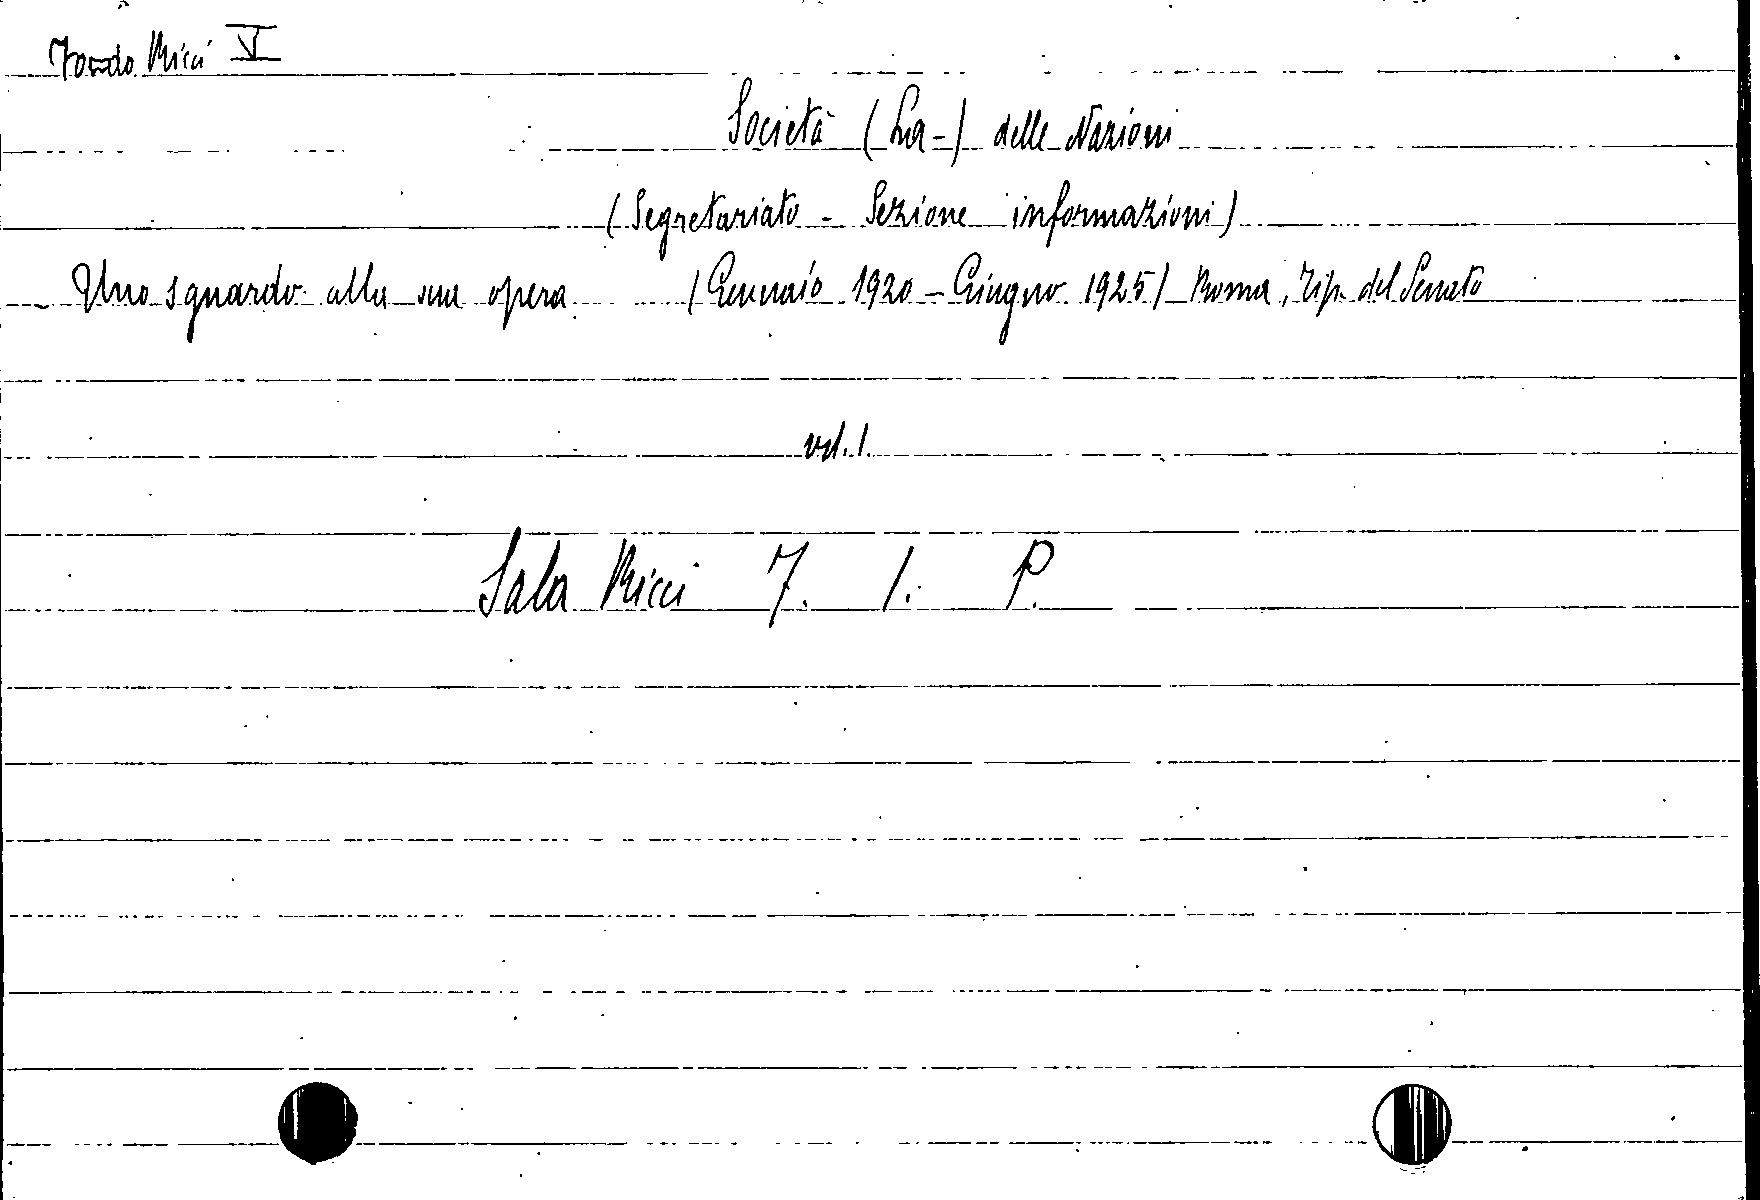 Fondo Ricci V
Società (La-) delle Nazioni
(Segretariato - Sezione informazioni)
- Uno sguardo alla sua opera (Gennaio 1920 - Giugno 1925) Roma, Tip. del Senato
vol. 1.
Sala Ricci 7. 1. P.